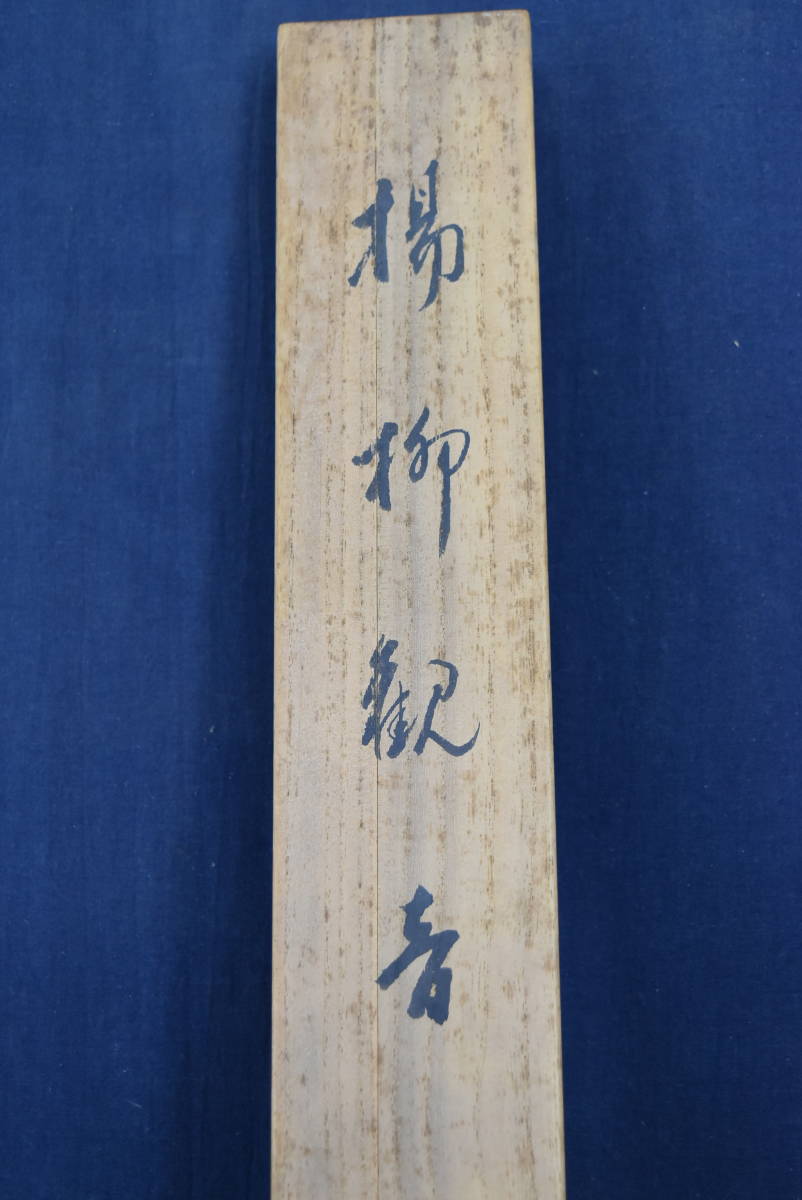 楊柳観音